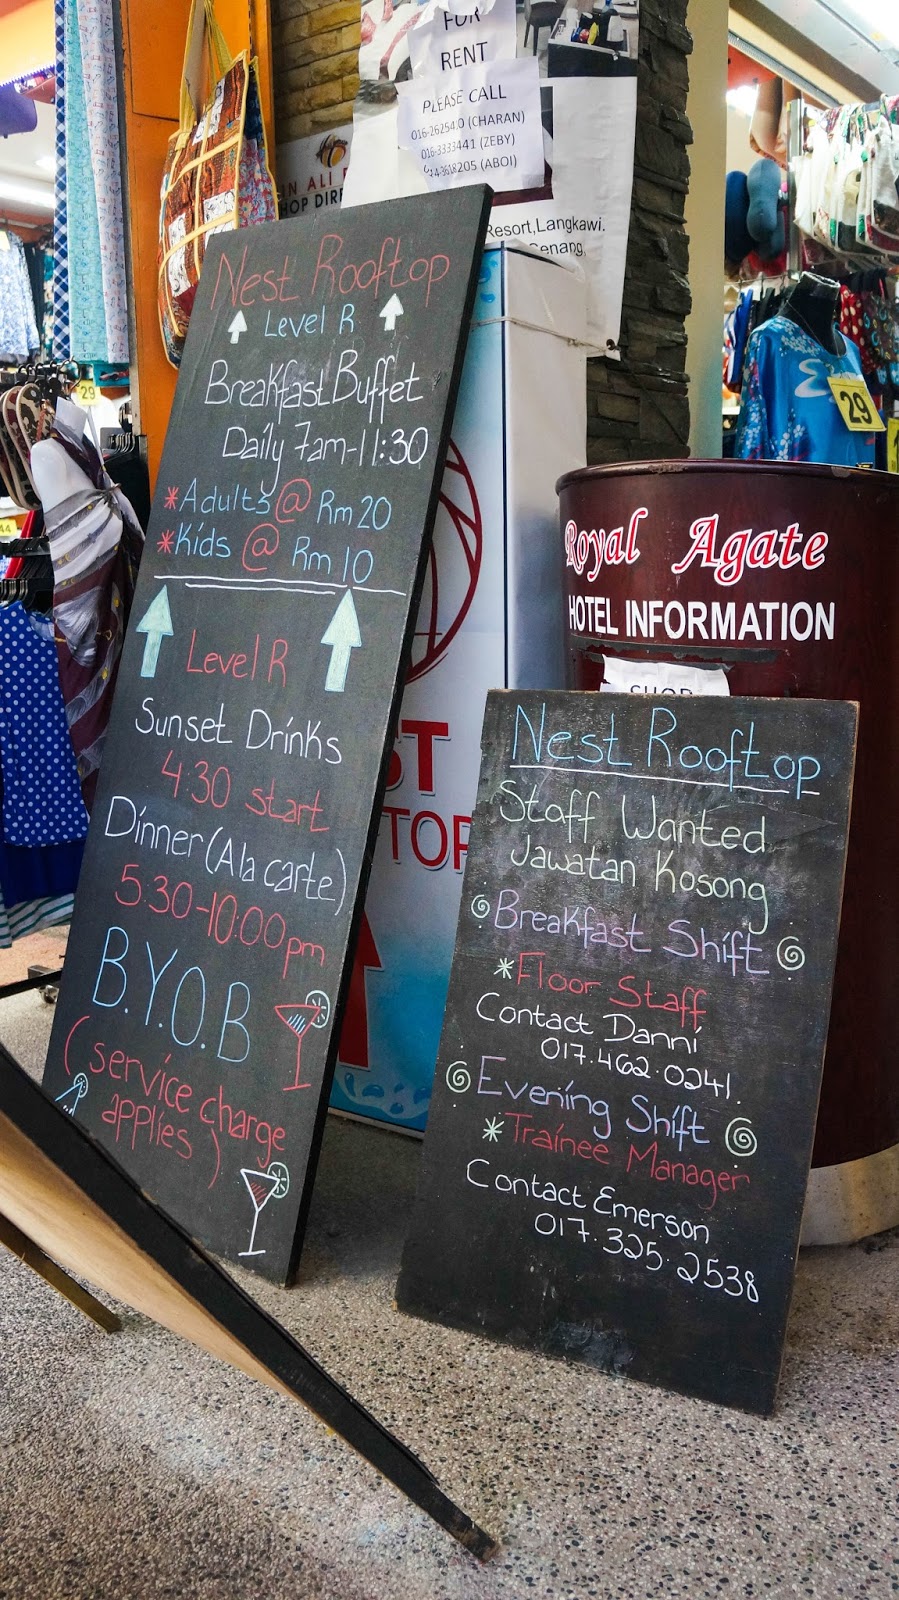 FOR
RENT
PLEASE CALL
(CHARAN)
016-3333441 (ZEBY)
(ABOI)
IN ALI
HOP DIRE
Resort,Langkawi.
Cenang,
29
29
44
Nest Rooftop
Level R
Breakfast Buffet
Daily 7am-11:30
*Adults @ Rm 20
*Kids @ Rm 10
Level R
Sunset Drinks
4:30 start
Dinner (Ala carte)
5:30-10:00pm
B.Y.O.B
(service charge
applies)
ST
TOP
Royal Agate
HOTEL INFORMATION
SHOP
Nest Rooftop
Staff Wanted
Jawatan Kosong
Breakfast Shift
*Floor Staff
Contact Danni
017.462.0241.
Evening Shift
*Trainee Manager
Contact Emerson
017.325.2538